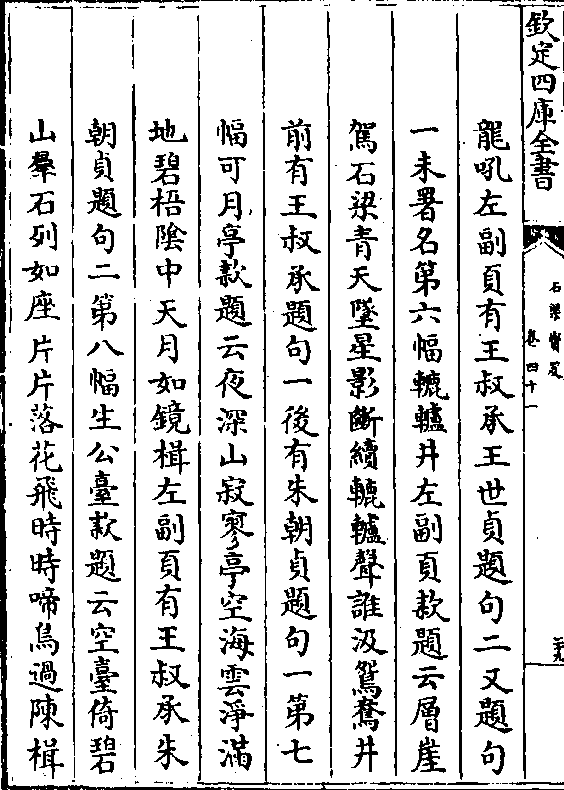 欽定四庫全書
石渠寶笈
卷四十一
龍吼左副頁有王叔承王世貞題句二又題句
一未署名第六幅轆轤井左副頁款題云層崖
駕石梁青天墜星影斷續轆轤聲誰汲鴛鴦井
前有王叔承題句一後有朱朝貞題句一第七
幅可月亭款題云夜深山寂寥亭空海雲淨滿
地碧梧陰中天月如鏡楫左副頁有王叔承朱
朝貞題句二第八幅生公臺款題云空臺倚碧
山羣石列如座片片落花飛時時啼鳥過陳楫